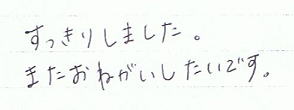 すっきりしました。
またおねがいしたいです。